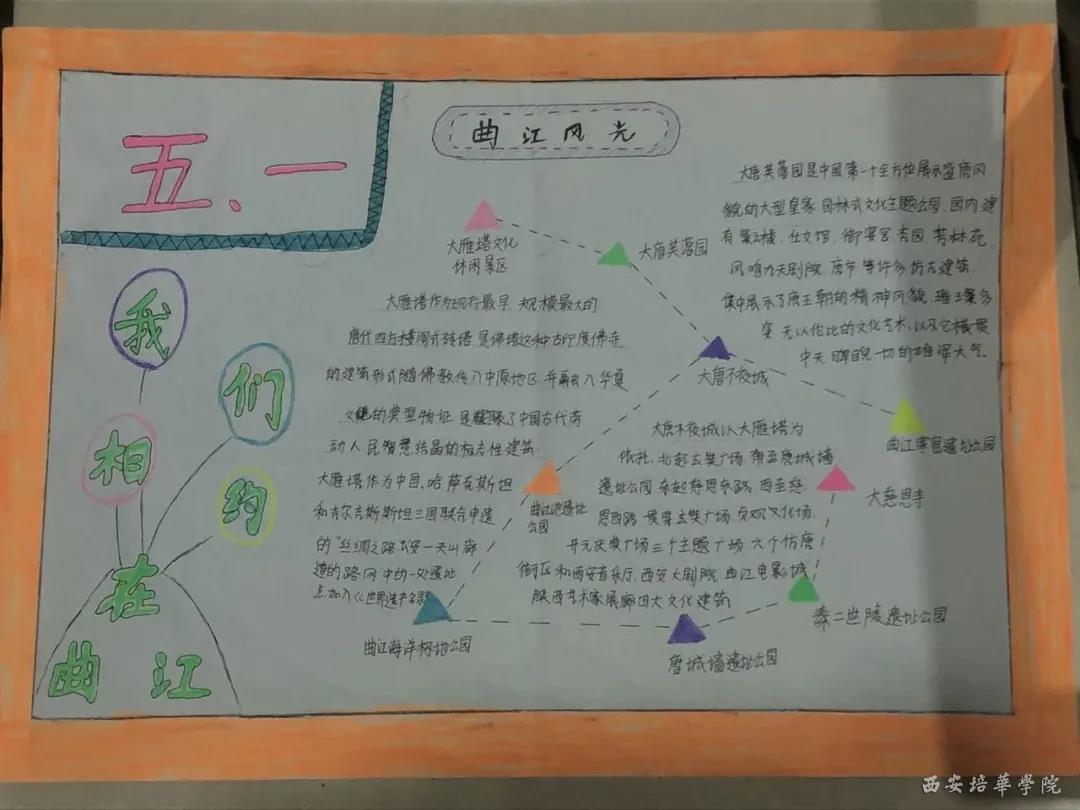 五、一
曲江风光
我们相约
在
曲江
大雁塔文化
休闲景区
大唐芙蓉园
大唐不夜城
曲江寒窑遗址公园
大慈恩寺
秦二世陵遗址公园
唐城墙遗址公园
曲江海洋极地公园
曲江池遗址
公园
大雁塔作为现存最早、规模最大的
唐代四方楼阁式砖塔,是佛塔这种古印度佛寺
的建筑形式随佛教传入中原地区,并融入华夏
文化的典型物证,是凝聚了中国古代劳
动人民智慧结晶的标志性建筑。
大雁塔作为中国、哈萨克斯坦
和吉尔吉斯斯坦三国联合申遗
的"丝绸之路:长安—天山廊
道的路网"中的一处遗址
点加入《世界遗产名录》
大唐芙蓉园是中国第一个全方位展示盛唐风
貌的大型皇家园林式文化主题公园,园内建
有紫云楼、仕女馆、御宴宫、杏园、芳林苑、
凤鸣九天剧院、唐市等许多仿古建筑,
集中展示了唐王朝的精神风貌,璀璨多
无以伦比的文化艺术,以及它横贯
中天、睥睨一切的雄浑大气。
大唐不夜城以大雁塔为
依托,北起玄奘广场、南至唐城墙
遗址公园、东起慈恩东路、西至慈
恩西路,贯穿玄奘广场、贞观文化广场、
开元庆典广场三个主题广场、六个仿唐
街区和西安音乐厅、西安大剧院、曲江电影城、
陕西艺术家展廊四大文化建筑。
西安培華學院